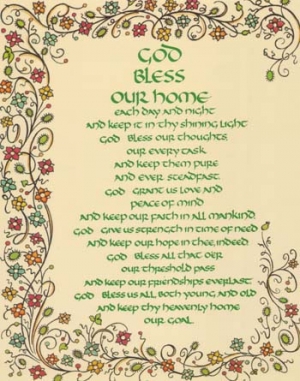 GOD
BLESS
OUR HOME
EACH DAY AND NIGHT
AND KEEP IT IN THY SHINING LIGHT
GOD BLESS OUR THOUGHTS,
OUR EVERY TASK
AND KEEP THEM PURE
AND EVER STEADFAST.
GOD GRANT US LOVE AND
PEACE OF MIND
AND KEEP OUR FAITH IN ALL MANKIND.
GOD GIVE US STRENGTH IN TIME OF NEED
AND KEEP OUR HOPE IN THEE, INDEED.
GOD BLESS ALL THAT O'ER
OUR THRESHOLD PASS
AND KEEP OUR FRIENDSHIPS EVERLAST.
GOD BLESS US ALL, BOTH YOUNG AND OLD
AND KEEP THY HEAVENLY HOME
OUR GOAL.